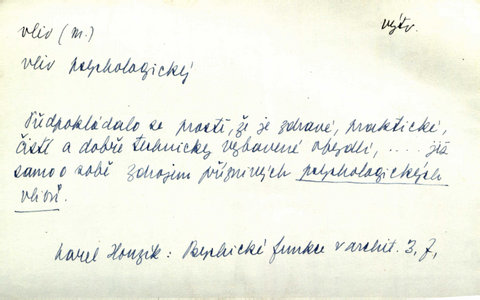 výtv.
vliv (m.)
vliv psychologický
Předpokládalo se prostě, že je zdravé, praktické,
čisté a dobře technicky vybavené obydlí, .... již
samo o sobě zdrojem příznivých psychologických
vlivů.
Karel Honzík: Psychické funkce v archit. 3, 7,